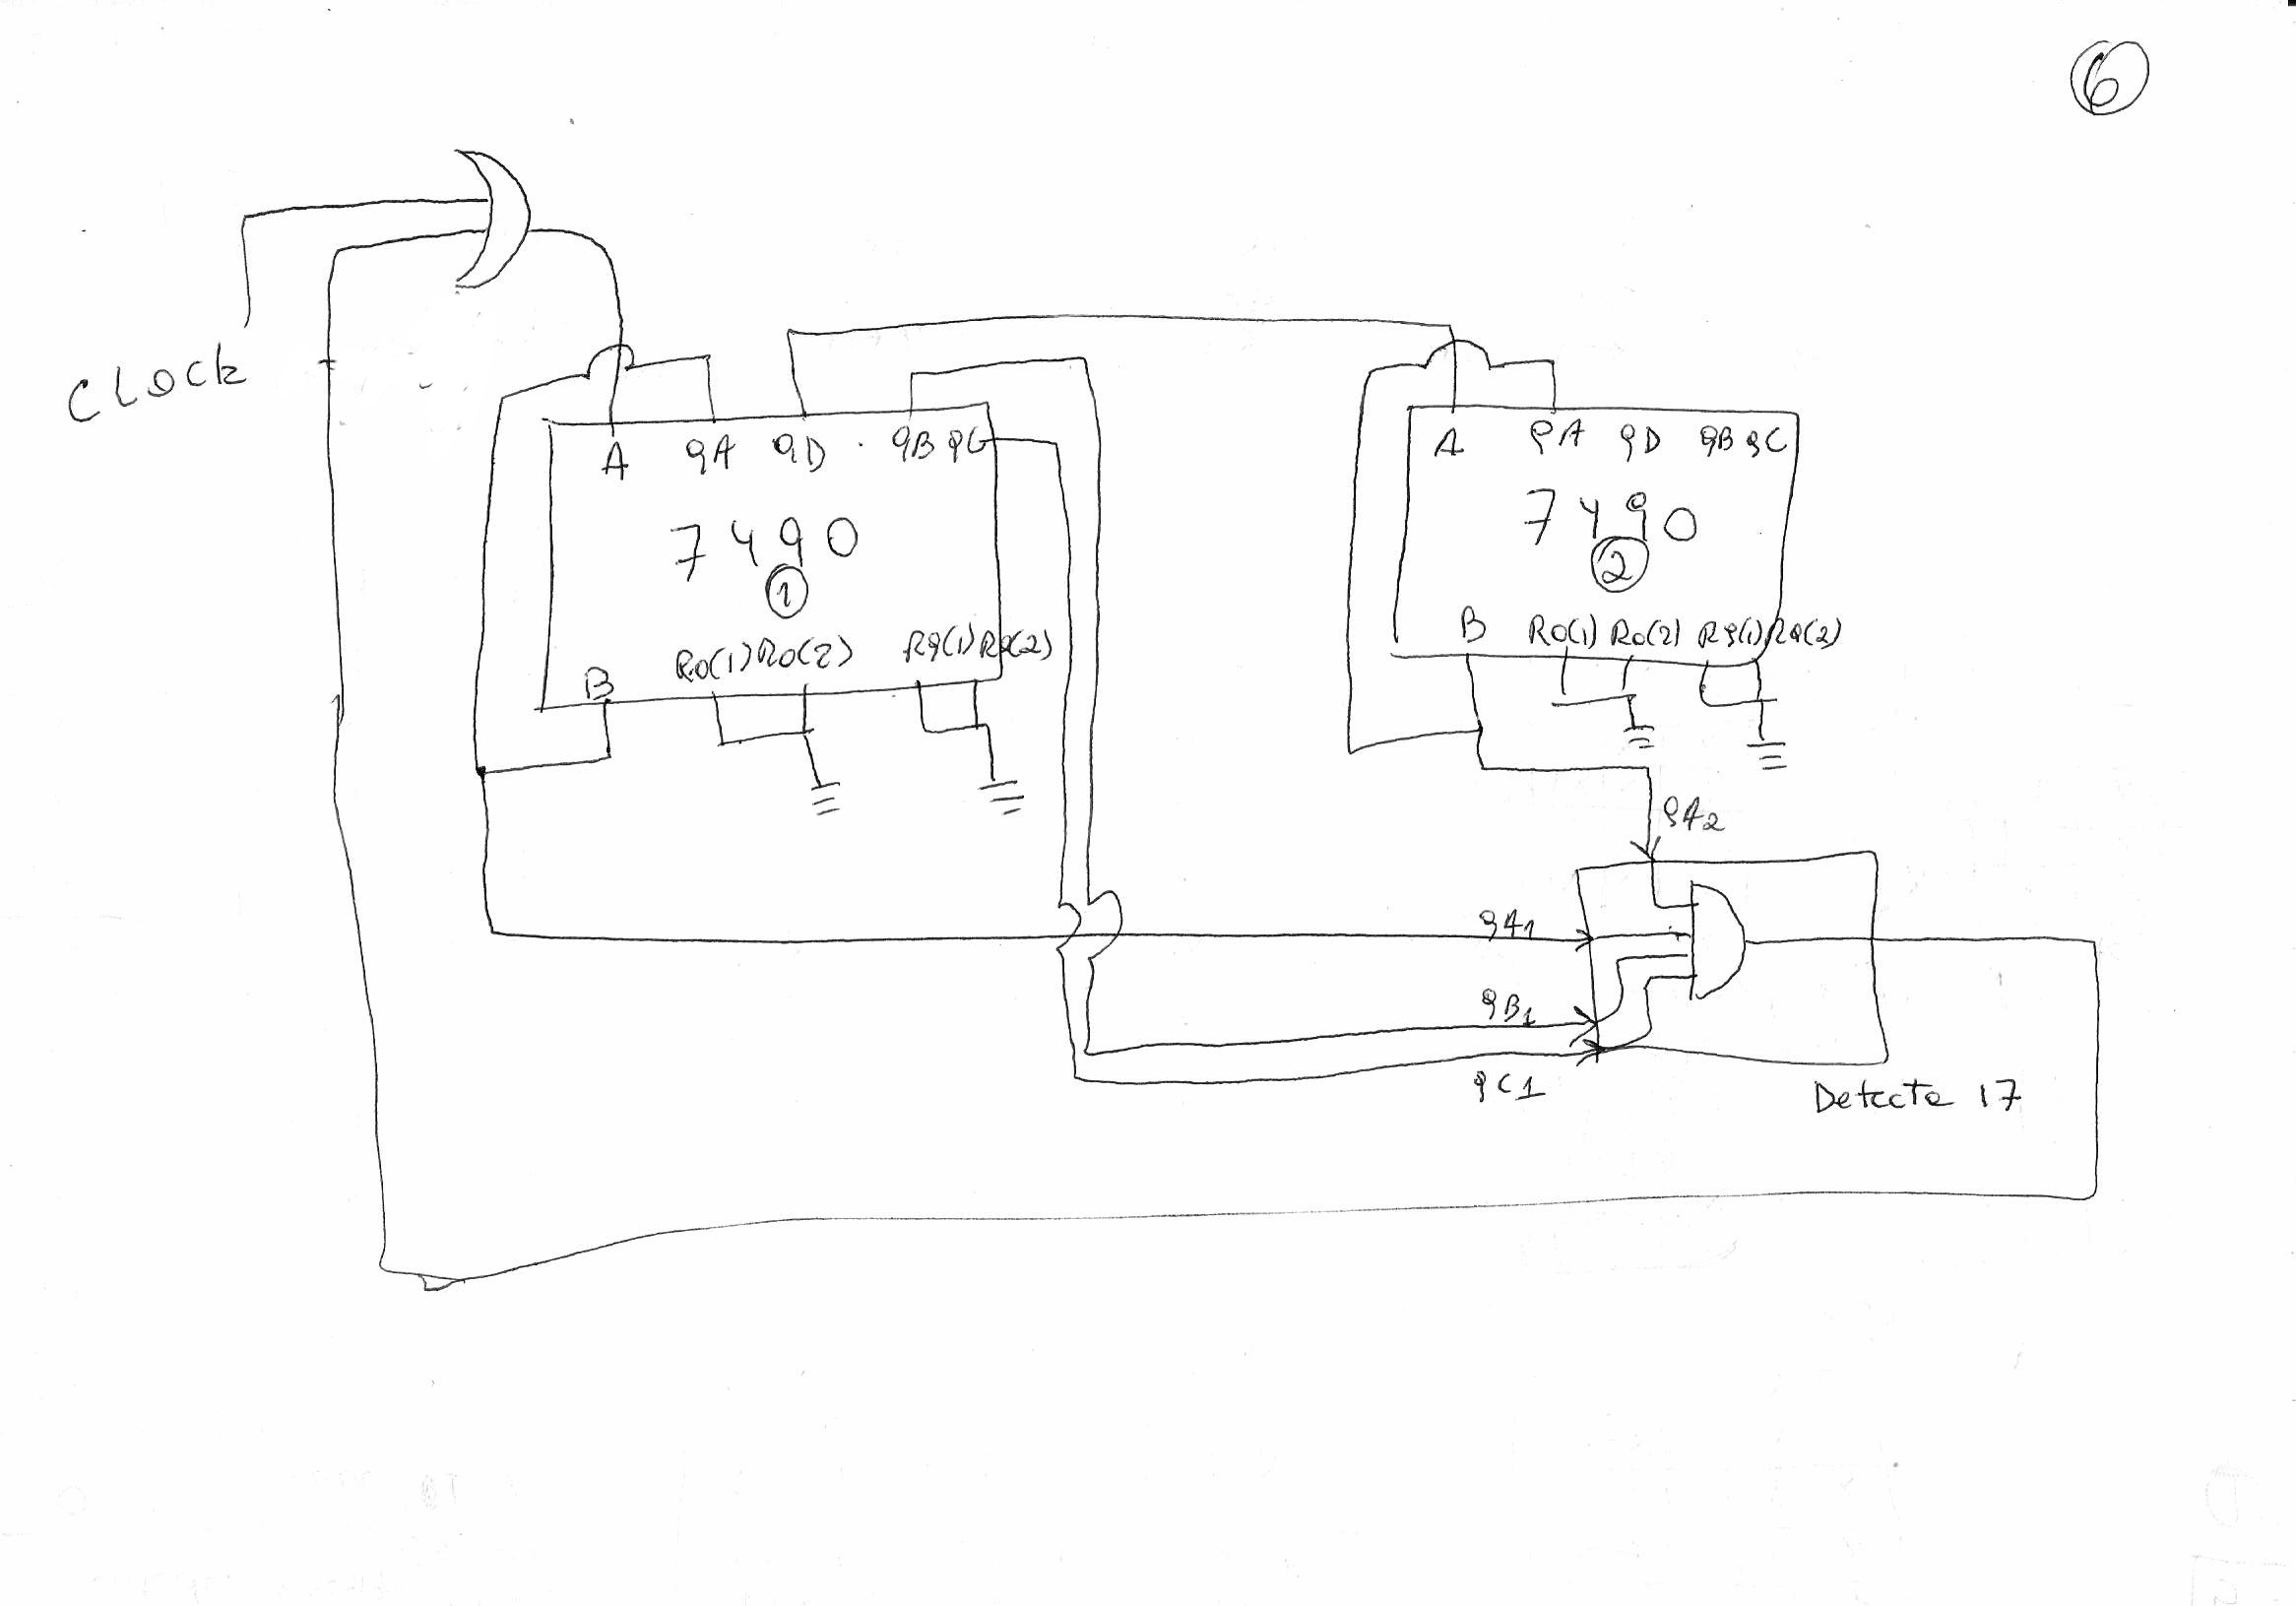 6
CLOCK
A QA QD QB QC
7490
1
B R0(1) R0(2) R9(1) R9(2)
A QA QD QB QC
7490
2
B R0(1) R0(2) R9(1) R9(2)
QA2
QA1
QB1
QC1
Detecta 17